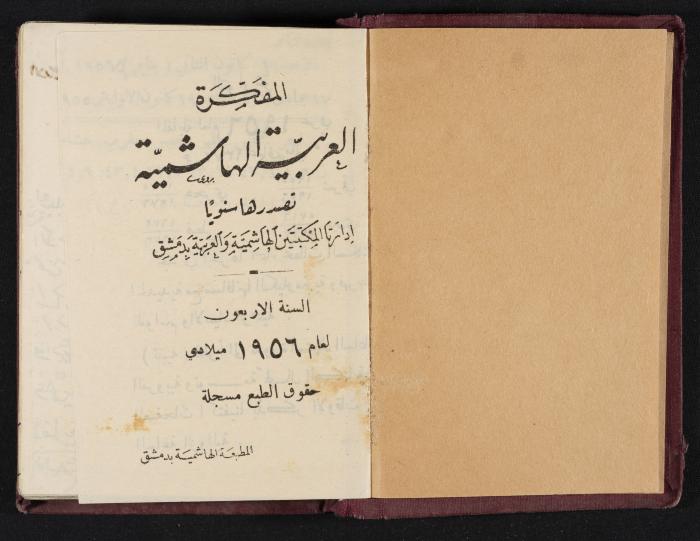 المفكرة
العربية الهاشمية
تصدرها سنويًا
إدارتا المكتبتين الهاشمية والعربية بدمشق
السنة الاربعون
لعام ١٩٥٦ ميلادي
حقوق الطبع مسجلة
المطبعة الهاشمية بدمشق